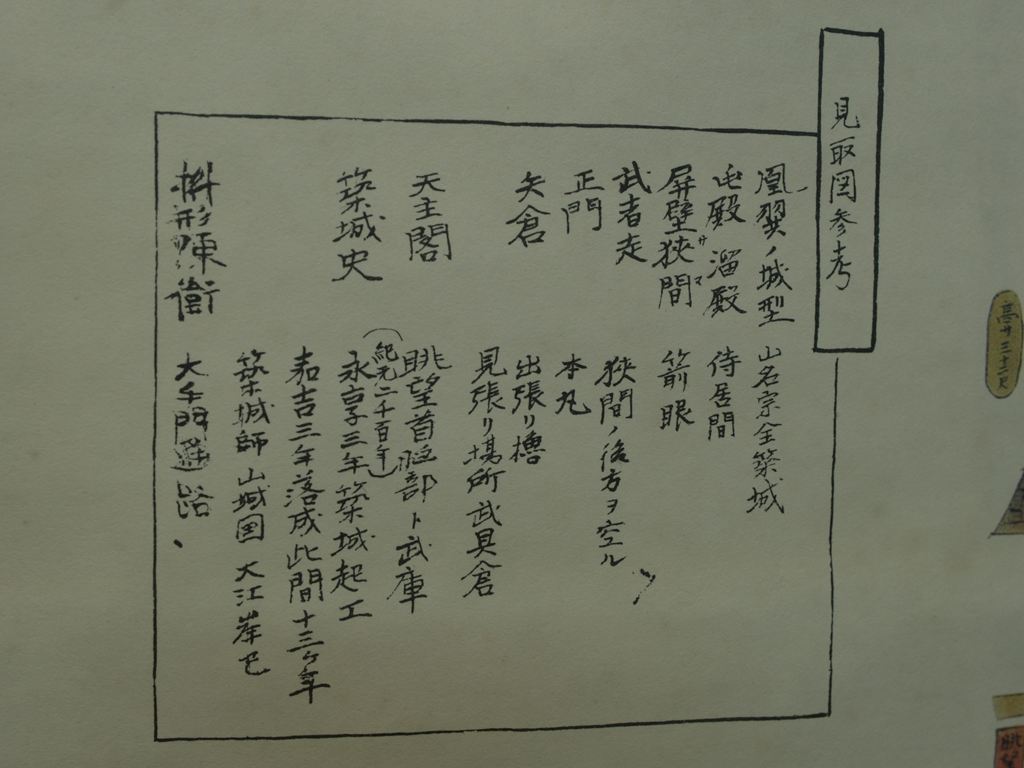 見取図参考
凰翼ノ城型 山名宗全築城
屯殿 溜殿 侍居間
屏壁狭間 サマ 箭眼
武者走 狭間ノ後方ヲ空ル
正門 本丸
矢倉 出張リ櫓
見張リ場所 武具倉
天主閣 眺望首脳部ト武庫
(紀元二千百年)
築城史 永享三年築城起工
嘉吉三年落成此間十三ヶ年
築城師 山城国 大江岸
桝形陳衛 大手門 路、
高サ三十二尺
眺望